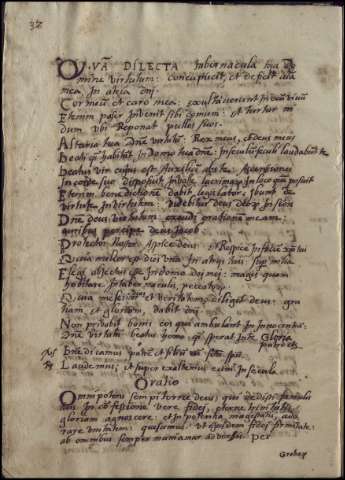 37
QVÃ DILECTA tabernacula tua do
mine virtutum: concupiscit, et deficit aĩa
mea In atria dñi.
Cor meũ, et caro mea: exultaverunt in deũ vivũ
Etenim passer Invenit sibi domum: et turtur ni
dum ubi Reponat pullos suos.
Altaria tua Dñe virtutũ: Rex meus, et deus meus
Beati qui habitãt In domo tua dñe: In secula
Beatus vir cujus est Auxiliũ abs te
In corde suo disposuit In valle lacrimarũ In loco quẽ posuit
Etenim benedictionẽ dabit legislator, Ibunt de
virtute In virtutem: videbitur deus deorũ In sion
Dñe deus virtutum exaudi orationẽ meam:
auribus percipe deus Jacob
Protector Noster Aspice deus: et Respice In faciẽ
Quia melior est dies una In atrijs tuis sup milia
Elegi abjectus esse In domo dei mei: magis quam
habitare In tabernaculis, peccatorũ
Quia misericordiã et veritatem diligit deus: gra
tiam, et gloriam, dabit dñs
Non pribabit bonis eos qui ambulant In Innocentia:
Dñe virtutũ beatus homo qui sperat In te Gloria
patri etc
Dñe
Laudemus, et super exaltemus eum In secula
Oratio
Omnipotens sempiterne deus, qui dedisti famulis
tuis In cõfessione vere fidej, eterne trinitatis
gloriam agnoscere, et In potentia magestatis, ado
rare unitatem: quesumus ut ejusdem fidej firmitate
ab omnibus semper muniamur adversis. per